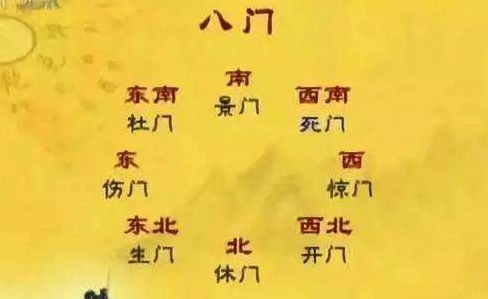 八门
南
景门
东南
杜门
西南
死门
东
伤门
西
惊门
东北
生门
西北
开门
北
休门